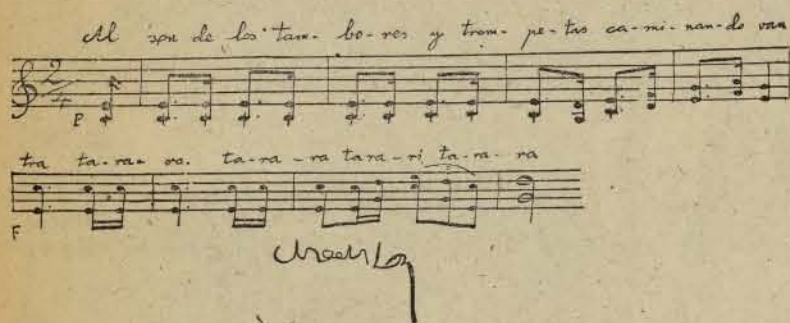 Al son de los tam- bo-res y trom- pe-tas ca-mi-nan-do van
2/4
P
tra ta-ra- ra. ta-ra-ra tara-ri ta-ra-ra
F